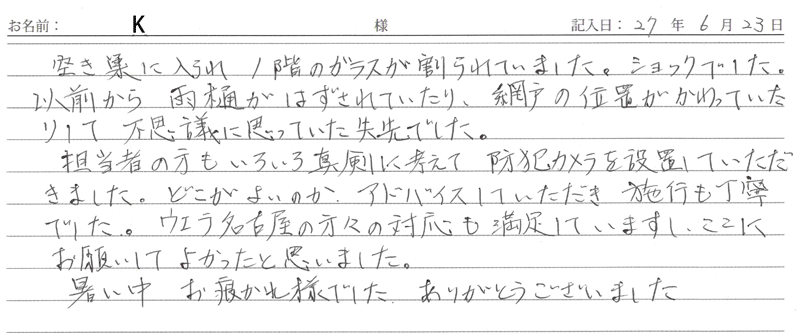 お名前： K 様 記入日： 27 年 6 月 23 日
空き巣に入られ 1階のガラスが割られていました。ショックでした。
以前から 雨樋がはずされていたり、網戸の位置がかわっていた
りして 不思議に思っていた矢先でした。
担当者の方もいろいろ真剣に考えて 防犯カメラを設置していただ
きました。どこがよいのか、アドバイスしていただき 施行も丁寧
でした。ウエラ名古屋の方々の対応も満足していますし、ここに
お願いして よかったと思いました。
暑い中 お疲かれ様でした. ありがとうございました